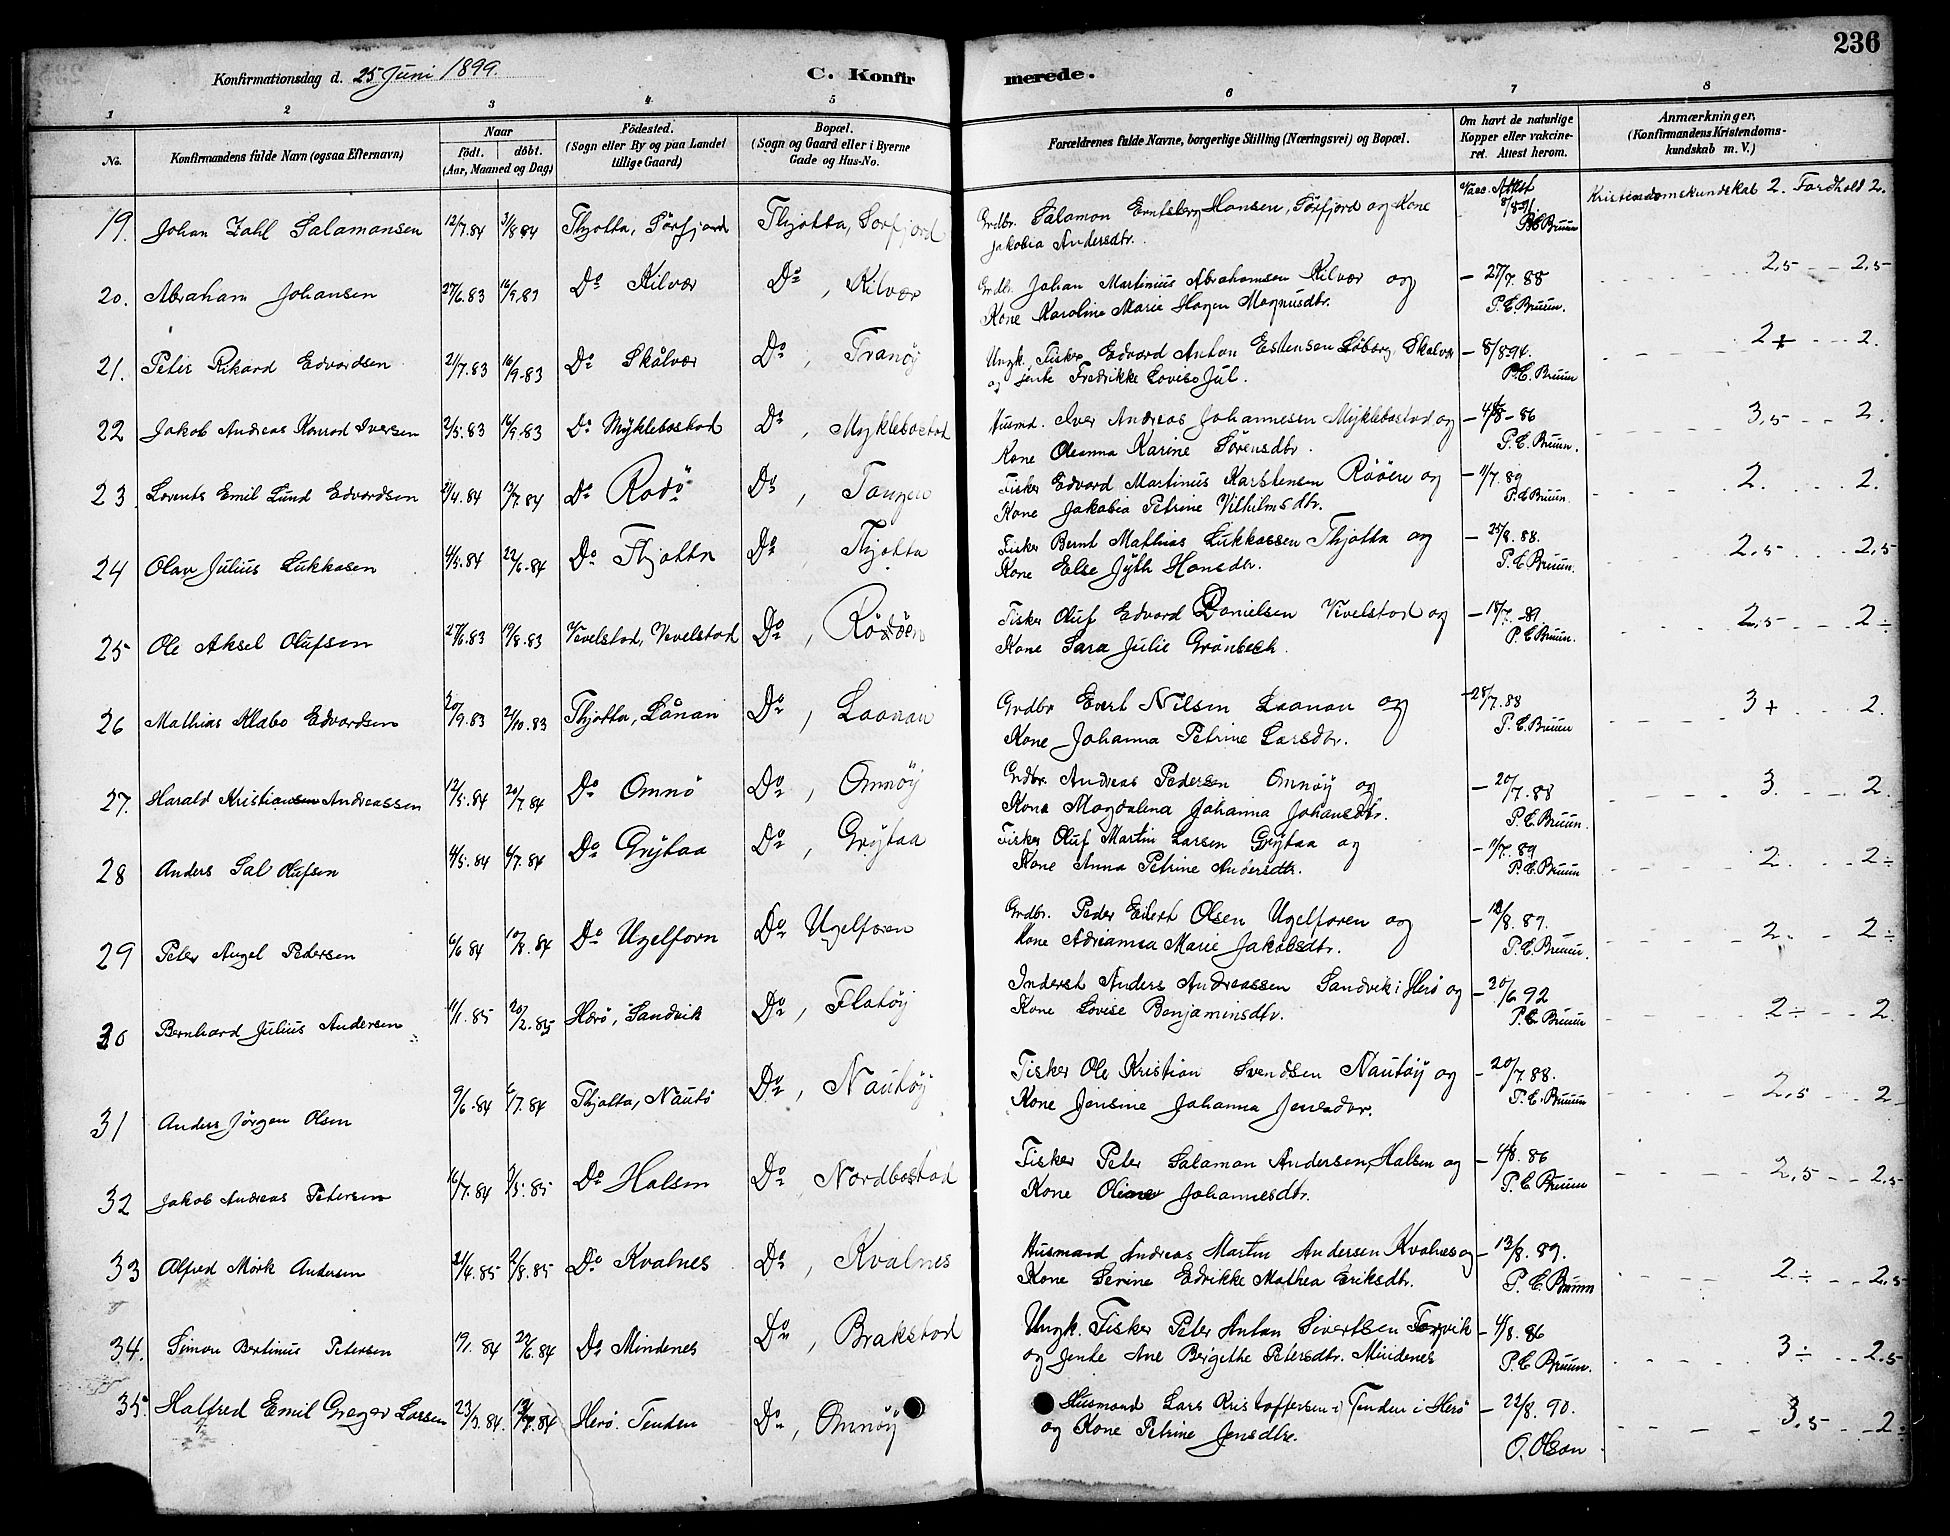 236
Konfirmationsdag d. 25 Juni 1899.
C. Konfirmerede.
1 2 3 4 5 6 7 8
No.
Konfirmandens fulde Navn (ogsaa Efternavn)
Naar
født. døbt.
(Aar, Maaned og Dag)
Fødested.
(Sogn eller By og paa Landet
tillige Gaard)
Bopæl.
(Sogn og Gaard eller i Byerne
Gade og Hus-No.
Forældrenes fulde Navne, borgerlige Stilling (Næringsvei) og Bopæl.
Om havt de naturlige
Kopper eller vakcine-
ret. Attest herom.
Anmærkninger,
(Konfirmandens Kristendoms-
kundskab m. V.)
19. Johan Zahl Salamonsen 12/7.84 31/8 84 Thjøtta, Sørfjord Thjøtta, Sørfjord Grdbr. Salamon Erntsberg Hansen, Sørfjord og Kone Vacc. Attest Kristendomskundskab 2. Forhold 2.
Jakobia Andersdtr. 8/8 91. P.C. Bruun
20. Abraham Johansen 27/6.83 16/9.83 Do Kilvær Do, Kilvær Grdbr. Johan Martinius Abrahamsen Kilvær og - 27/7. 88 2,5 - - 2,5
Kone Karoline Marie Hagen Magnusdtr. P.C. Bruun.
21. Peter Rikard Edvardsen 21/7.83 16/9.83 Do Skålvær Do, Tranøy Ungk. Fisker Edvard Anton Estensen Søberg, Skalvær - 8/8 94. 2+ - - 2.
og Jente Fredrikke Lovise Jul. P.C. Bruun
22 Jakob Andreas Konrad Iversen 2/5.83 16/9.83 Do Myklebostad Do, Myklebostad Husmd. Iver Andreas Johannesen Myklebostad og - 4/8 - 86 3,5 - - 2.
Kone Oleanna Karine Sørensdtr. P.C. Bruun.
23. Lorents Emil Lund Edvardsen 21/4.84 13/7.84 Do Rødø Do, Tangen Fisker Edvard Martinius Karstensen Røøen og - 11/7. 89 2. 2.
Kone Jakobia Petrine Vilhelmsdtr. P.C. Bruun.
24 Olav Julius Lukkasen 4/5.84 22/6.84 Do Thjøtta Do, Thjøtta Fisker Bernt Mathias Lukkassen Thjøtta og - 25/8. 88. 2,5 2,5
Kone Else Jyth Hansdtr. P.C. Bruun.
25 Ole Aksel Olufsen 27/6.83 19/8.83 Vevelstad, Vevelstad Do, Rødøen Fisker Oluf Edvard Danielsen Vevelstad og - 18/7. 89 2,5 2÷
Kone Sara Julie Grønbech. P.C. Bruun.
26 Mathias Klæbo Edvardsen 20/9.83 21/10.83 Thjøtta, Lånan Do, Laanan Grdbr Evert Nilsen Laanan og - 28/7.88 3+ 2.
Kone Johanna Petrine Larsdtr. P.C. Bruun
27. Harald Kristiansen Andreassen 12/5.84 20/7.84 Do Omnø Do, Omnøy Grdbr. Andreas Pedersen Omnøy og - 20/7. 88 3 2.
Kone Magdalena Johanna Johansdtr. P.C. Bruun.
28 Anders Sal Olufsen 4/5.84 6/7.84 Do Grytaa Do, Grytaa Fisker Oluf Martin Larsen Grytaa og - 11/7. 89 2 2÷
Kone Anna Petrine Andersdtr. P.C. Bruun
29 Peter Angel Pedersen 6/6 84 10/8.84 Do Ugelforn Do Ugelforen Grdbr. Peder Eilert Olsen Ugelforen og - 12/8. 89. 2. 2÷
Kone Adrianna Marie Jakobsdtr. P.C. Bruun.
30 Bernhard Julius Andersen 11/1.85 20/2.85 Herø, Sandvik Do, Flatøy Inderst Anders Andreassen Sandvik i Herø og - 20/6 92 2÷ - - 2.
Kone Lovise Benjaminsdtr. P.C. Bruun
31 Anders Jørgen Olsen 9/6.84 6/7.84 Thjøtta, Nautø Do, Nautøy Fisker Ole Kristian Svendsen Nautøy og - 20/7.88. 2,5 2
Kone Jensine Johanna Jensdtr. P.C. Bruun
32 Jakob Andreas Petersen 16/7.84 3/5.85 Do Halsen Do, Nordbostad Fisker Peter Salamon Andersen, Halsen og - 4/8. 86 2,5 - - 2,5
Kone Oline Johannesdtr. P.C. Bruun
33 Alfred Mørk Andersen 21/4.85 2/8.85 Do Kvalnes Do, Kvalnes Husmand Andreas Martin Andersen Kvalnes og - 13/8. 89. 2÷ - - 2,5
Kone Serine Edrikke Mathea Eriksdtr. P.C. Bruun
34. Simon Bertinus Petersen 19/1.84 22/6.84 Do Mindenes Do, Brakstad Ungk. Fisker Peter Antan Sivertsen Forvik - 4/8. 86 3÷ 2,5
og Jente Ane Bergithe Petersdtr. Mindenes P.C. Bruun.
35. Halfred Emil Greger Larsen 23/3.84 13/7.84 Herø. Tenden Do, Omnøy Husmand Lars Kristoffersen i Tenden i Herø - 22/8. 90. 3,5 2÷
og Kone Petrine Jensdtr. O. Olsen